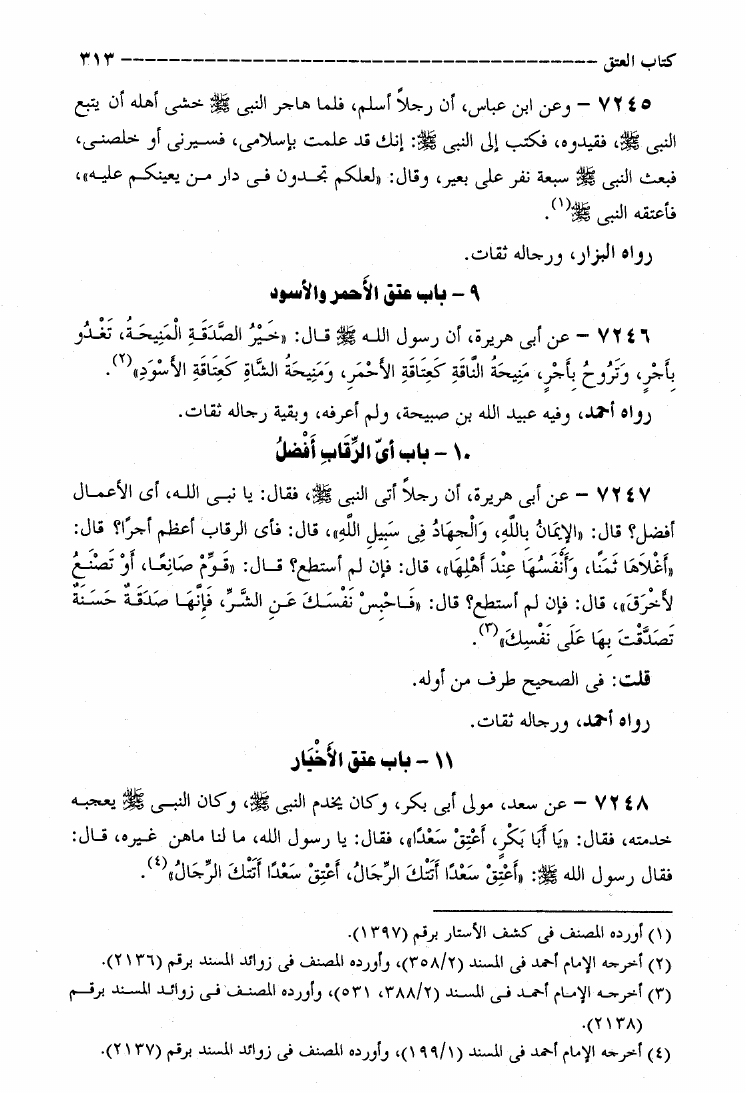 كتاب العتق ---------------------------------------- ٣١٣
٧٢٤٥ - وعن ابن عباس، أن رجلاً أسلم، فلما هاجر النبى ﷺ خشى أهله أن يتبع
النبى ﷺ، فقيدوه، فكتب إلى النبى ﷺ: إنك قد علمت بإسلامى، فسيرنى أو خلصنى،
فبعث النبى ﷺ سبعة نفر على بعير، وقال: «لعلكم تجدون فى دار من يعينكم عليه»،
فأعتقه النبى ﷺ(١).
رواه البزار، ورجاله ثقات.
٩ - باب عتق الأَحمر والأسود
٧٢٤٦ - عن أبى هريرة، أن رسول الله ﷺ قال: «خَيْرُ الصَّدَقَةِ الْمَنِيحَةُ، تَغْدُو
بِأَجْرٍ، وَتَرُوحُ بِأَجْرٍ، مَنِيحَةُ النَّاقَةِ كَعَتَاقَةِ الأَحْمَرِ، وَمَنِيحَةُ الشَّاةِ كَعَتَاقَةِ الأَسْوَدِ»(٢).
رواه أحمد، وفيه عبيد الله بن صبيحة، ولم أعرفه، وبقية رجاله ثقات.
١٠ - باب أىّ الرِّقابِ أَفْضلُ
٧٢٤٧ - عن أبى هريرة، أن رجلاً أتى النبى ﷺ، فقال: يا نبى الله، أى الأعمال
أفضل؟ قال: «الإِيمَانُ بِاللَّهِ، وَالْجِهَادُ فِى سَبِيلِ اللَّهِ»، قال: فأى الرقاب أعظم أجرًا؟ قال:
«أَغْلاَهَا ثَمَنًا، وَأَنْفَسُهَا عِنْدَ أَهْلِهَا»، قال: فإن لم أستطع؟ قال: «قَوِّمْ صَانِعًا، أَوْ تَصْنَعُ
لأَخْرَقَ»، قال: فإن لم أستطع؟ قال: «فَاحْبِسْ نَفْسَكَ عَنِ الشَّرِّ، فَإِنَّهَا صَدَقَةٌ حَسَنَةٌ
تَصَدَّقْتَ بِهَا عَلَى نَفْسِكَ»(٣).
قلت: فى الصحيح طرف من أوله.
رواه أحمد، ورجاله ثقات.
١١ - باب عتق الأَخْيَار
٧٢٤٨ - عن سعد، مولى أبى بكر، وكان يخدم النبى ﷺ، وكان النبى ﷺ يعجبه
خدمته، فقال: «يَا أَبَا بَكْرٍ، أَعْتِقْ سَعْدًا»، فقال: يا رسول الله، ما لنا ماهن غيره، قال:
فقال رسول الله ﷺ: «أَعْتِقْ سَعْدًا أَتَتْكَ الرِّجَالُ، أَعْتِقْ سَعْدًا أَتَتْكَ الرِّجَالُ»(٤).
(١) أورده المصنف فى كشف الأستار برقم (١٣٩٧).
(٢) أخرجه الإمام أحمد فى المسند (٣٥٨/٢)، وأورده المصنف فى زوائد المسند برقم (٢١٣٦).
(٣) أخرجه الإمام أحمد فى المسند (٣٨٨/٢، ٥٣١)، وأورده المصنف فى زوائد المسند برقم
(٢١٣٨).
(٤) أخرجه الإمام أحمد فى المسند (١٩٩/١)، وأورده المصنف فى زوائد المسند برقم (٢١٣٧).